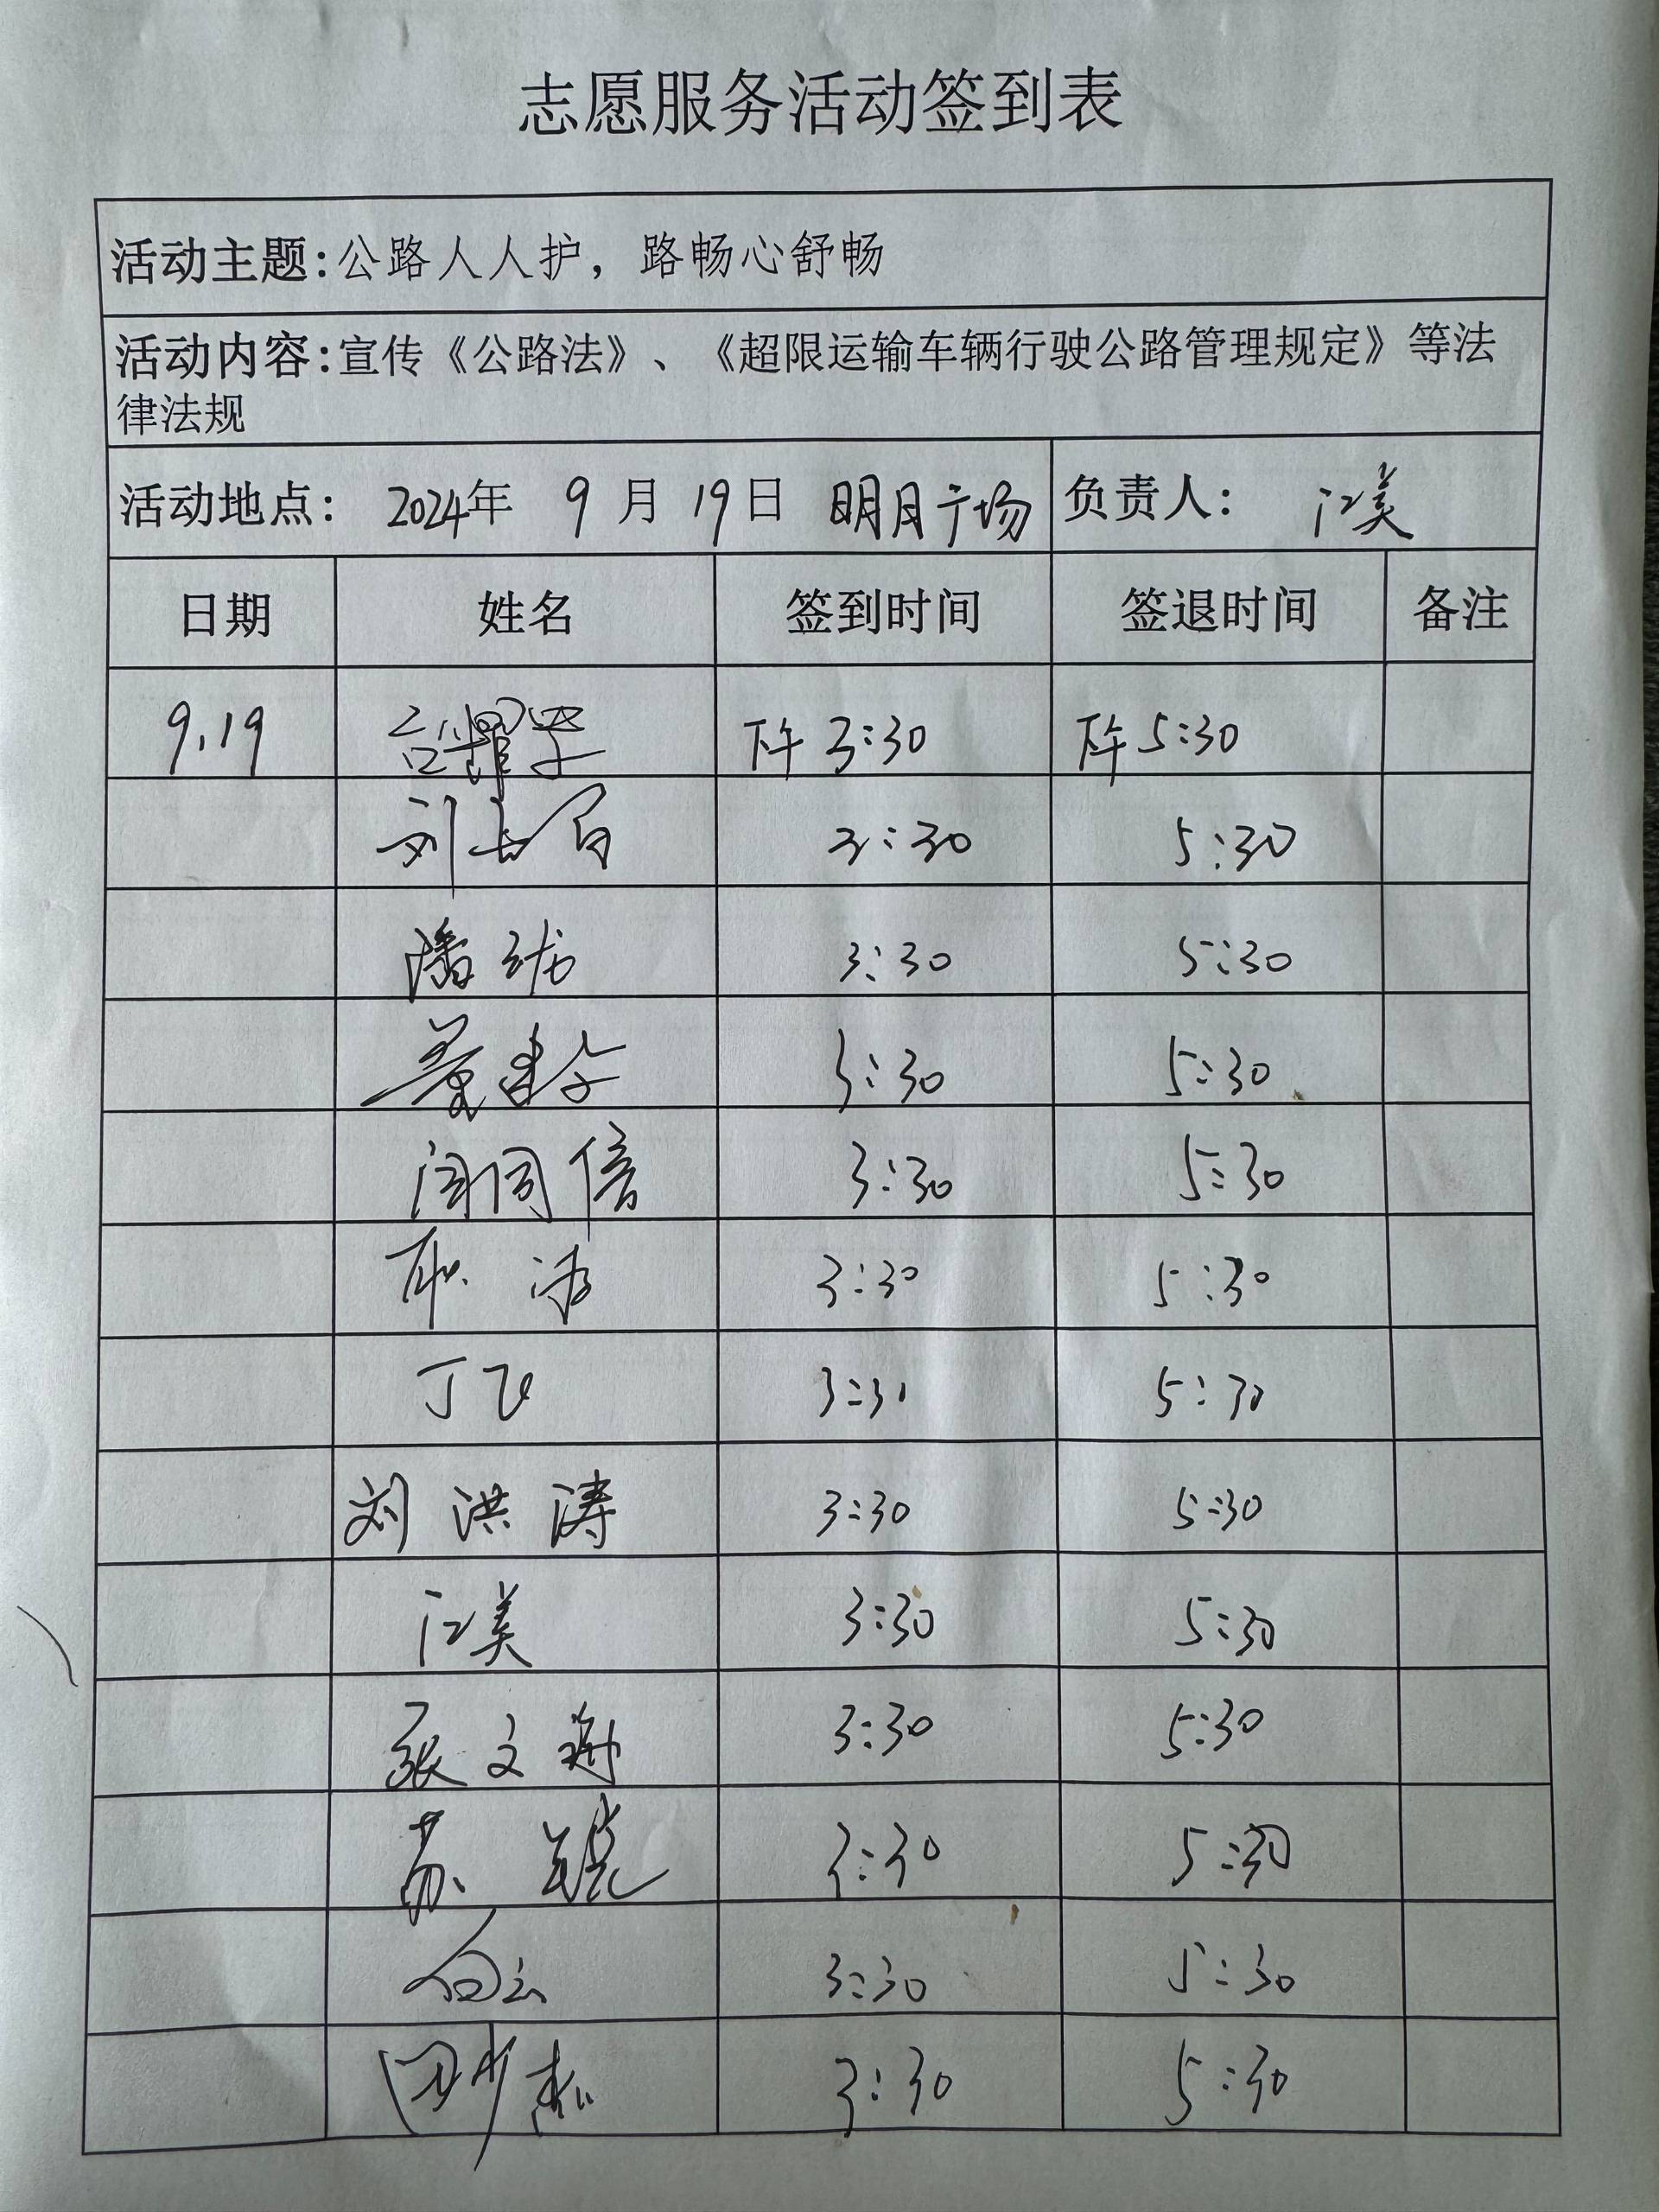 志愿服务活动签到表
活动主题:公路人人护，路畅心舒畅
活动内容:宣传《公路法》、《超限运输车辆行驶公路管理规定》等法
律法规
活动地点: 2024年 9月 19日 明月广场 负责人: 江美
日期 姓名 签到时间 签退时间 备注
9.19 下午 3:30 下午 5:30
刘 3:30 5:30
潘 3:30 5:30
董建 3:30 5:30
闫同倍 3:30 5:30
耿 3:30 5:30
丁飞 3:30 5:30
刘洪涛 3:30 5:30
江美 3:30 5:30
张文 3:30 5:30
苏锐 3:30 5:30
白云 3:30 5:30
田少杰 3:30 5:30